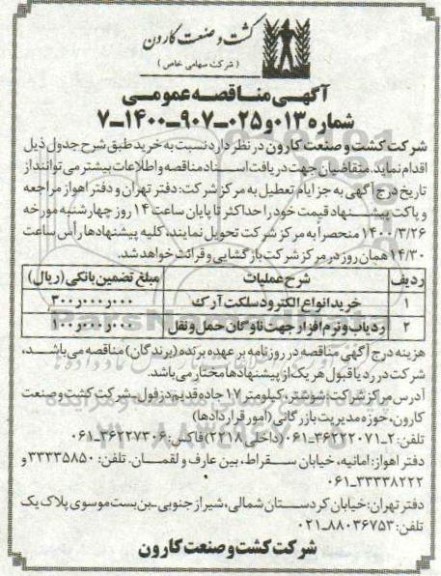 کشت و صنعت کارون
(شرکت سهامی خاص)
آگهی مناقصه عمومی
شماره ۰۱۳ و ۰۲۵-۹۰۷-۱۴۰۰-۷
شرکت کشت و صنعت کارون در نظر دارد نسبت به خرید طبق شرح جدول ذیل
اقدام نماید. متقاضیان جهت دریافت اسناد مناقصه و اطلاعات بیشتر می توانند از
تاریخ درج آگهی به جز ایام تعطیل به مرکز شرکت: دفتر تهران و دفتر اهواز مراجعه
و پاکت پیشنهاد قیمت خود را حداکثر تا پایان ساعت ۱۴ روز چهارشنبه مورخه
۱۴۰۰/۳/۲۶ منحصراً به مرکز شرکت تحویل نمایند، کلیه پیشنهادها رأس ساعت
۱۴/۳۰ همان روز در مرکز شرکت بازگشایی و قرائت خواهد شد.
ردیف شرح عملیات مبلغ تضمین بانکی (ریال)
۱ خرید انواع الکترود سلکت آرک ۳۰۰٫۰۰۰٫۰۰۰
۲ ردیاب و نرم افزار جهت ناوگان حمل و نقل ۱۰۰٫۰۰۰٫۰۰۰
هزینه درج آگهی مناقصه در روزنامه بر عهده برنده (برندگان) مناقصه می باشد،
شرکت در رد یا قبول هر یک از پیشنهادها مختار می باشد.
آدرس مرکز شرکت: شوشتر، کیلومتر ۱۷ جاده قدیم دزفول-شرکت کشت و صنعت
کارون، حوزه مدیریت بازرگانی (امور قراردادها)
تلفن: ۲-۳۶۲۲۲۰۷۱-۰۶۱ (داخلی ۲۲۱۸) فاکس: ۳۶۲۲۷۳۰۶-۰۶۱
دفتر اهواز: امانیه، خیابان سقراط، بین عارف و لقمان. تلفن: ۳۳۳۳۵۸۵۰ و
۳۳۳۳۸۲۲۲-۰۶۱
دفتر تهران: خیابان کردستان شمالی، شیراز جنوبی-بن بست موسوی پلاک یک
تلفن: ۸۸۰۳۶۷۵۳-۰۲۱
شرکت کشت و صنعت کارون